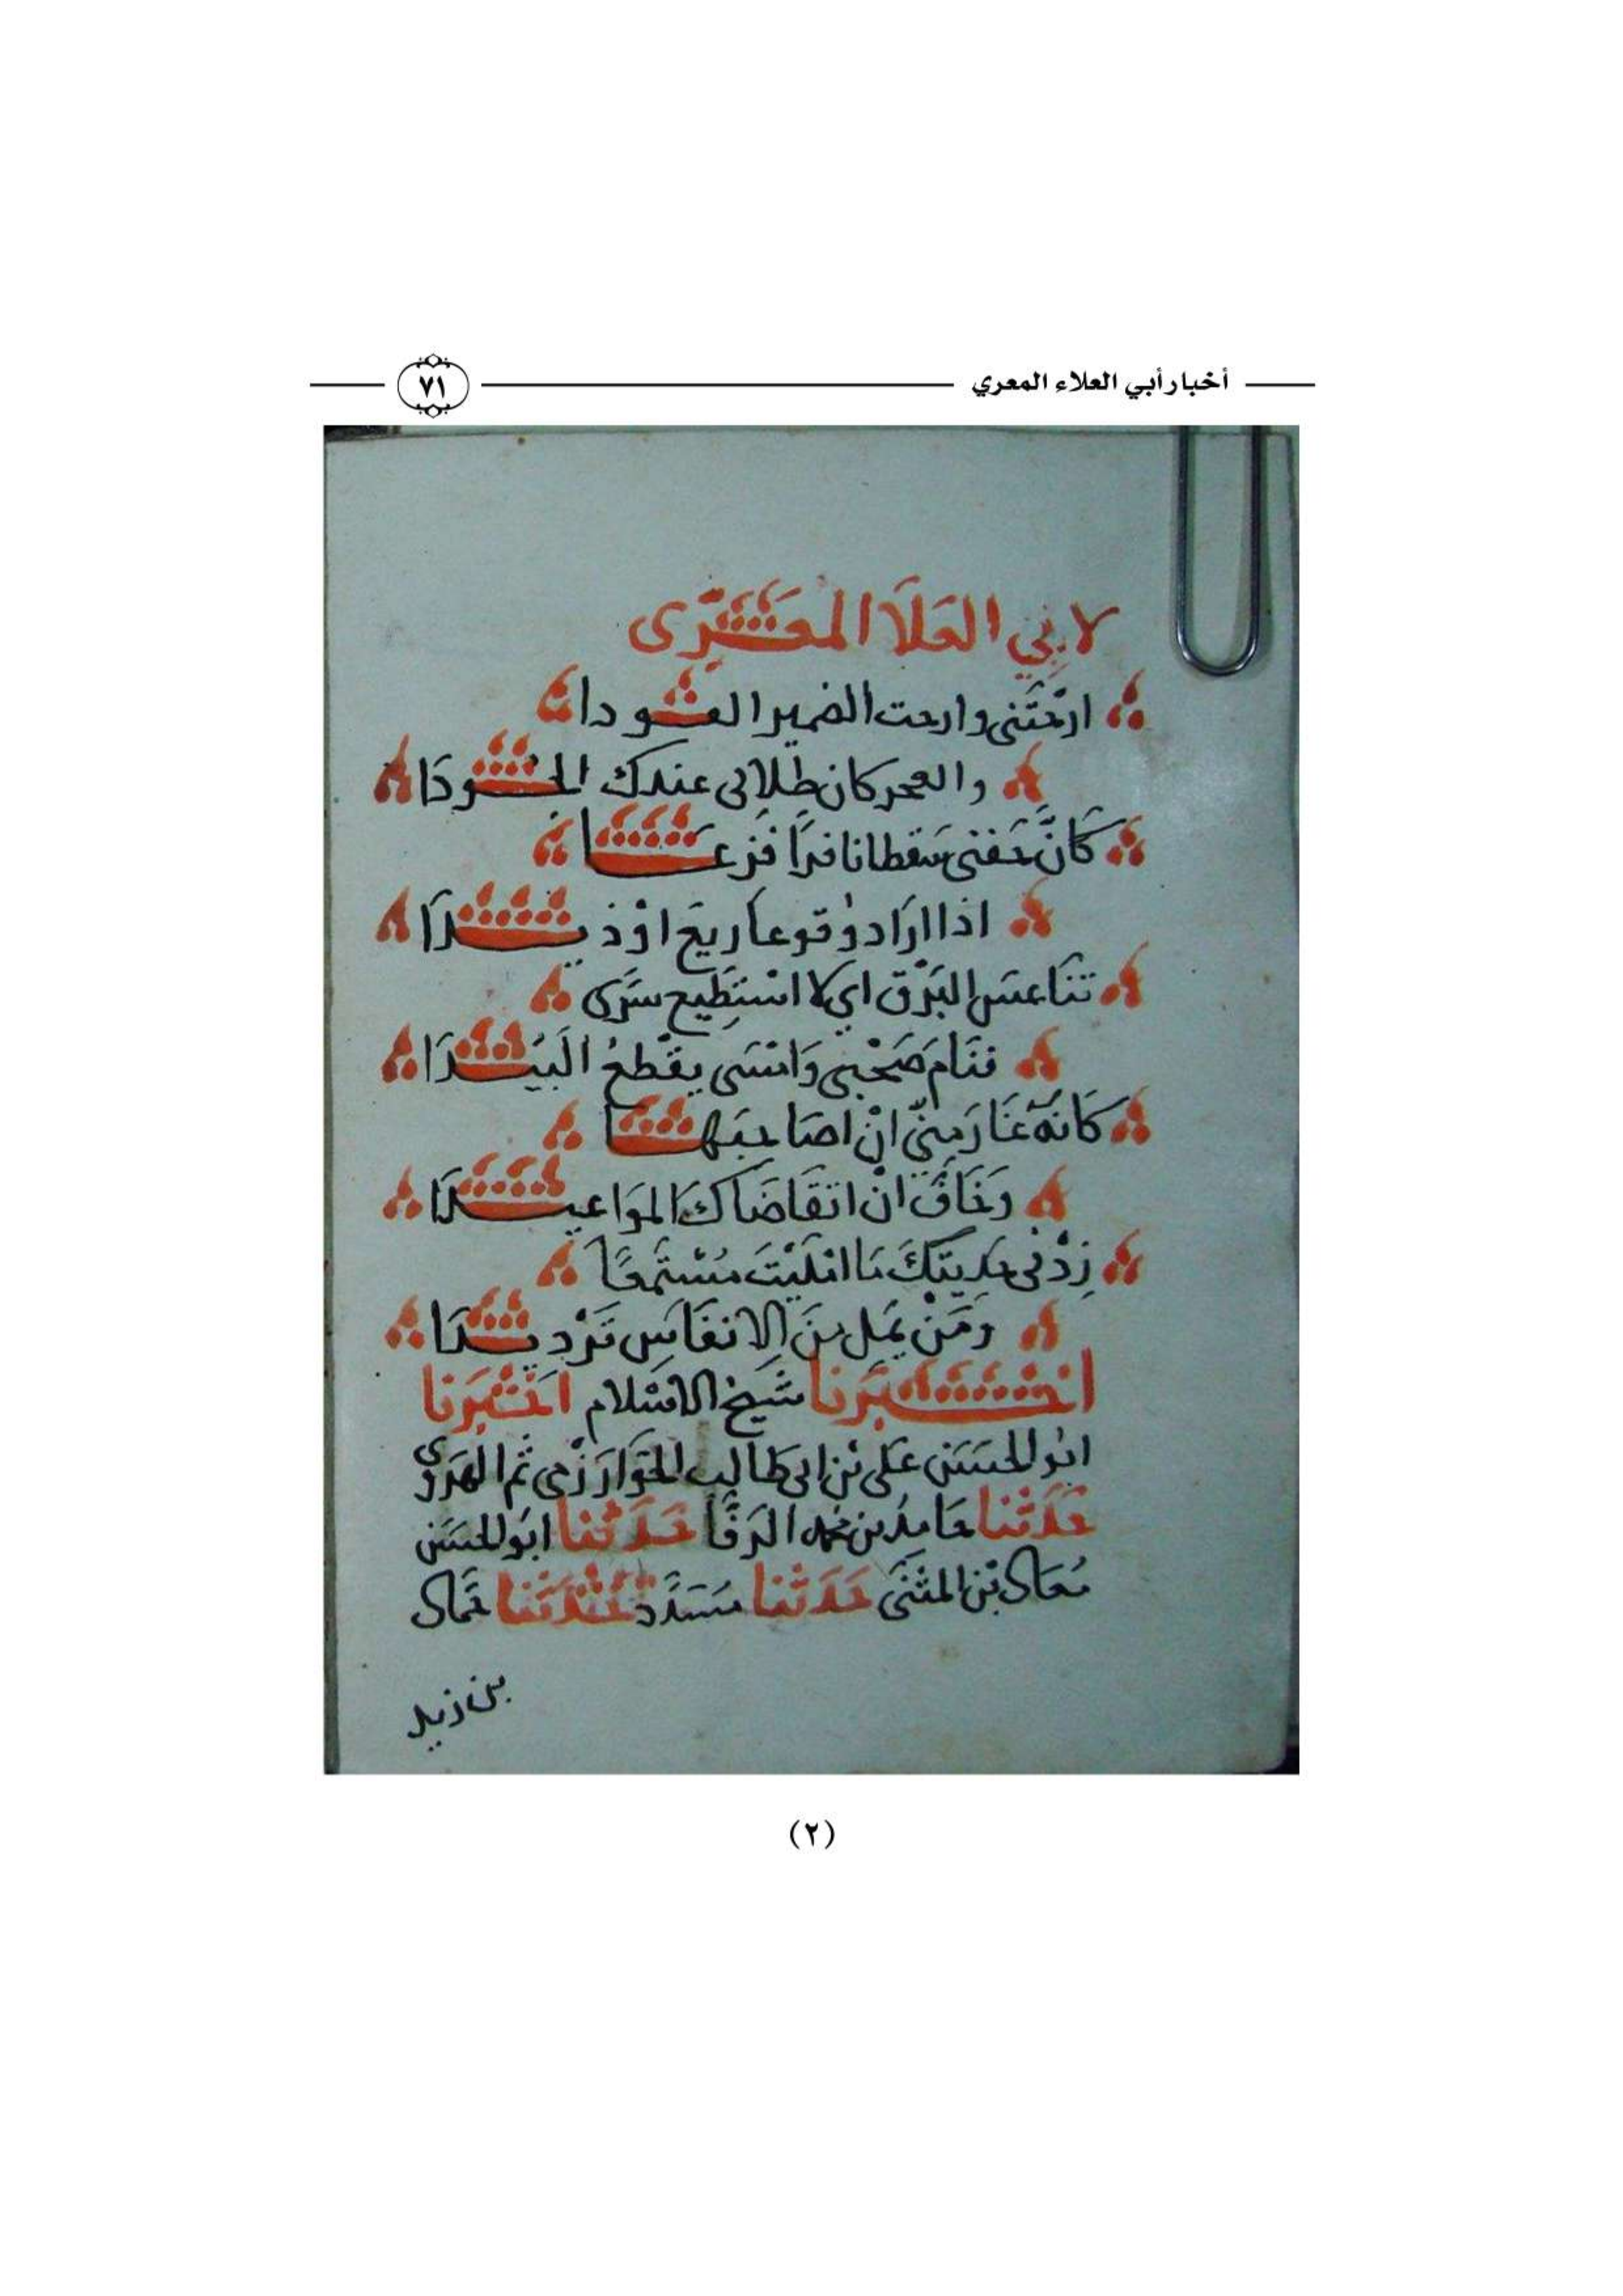 أخبار أبي العلاء المعري
٧١
لابي العَلَا المعَرّى
ارَحْتَنى وارحت الضمير العودا
والعجز كان طِلابى عندك الجُودَا
كَانَّ جَفنى سقطا نافرًا فزعًا
اذا ارَاد وُقوعا ريعَ اوْ ذيدَا
تنَاعسَ البَرْق اي لا اسْتطِيع سَرَى
فنَامَ صَحْبى وَامْسَى يقْطعُ البَيْدَا
كَانهُ غَارَ مِنّى انْ اصَاحبَها
وَخَافَ انْ اتقَاضَاكَ المَوَاعيدَا
زِدْنى حَدِيثكَ مَا امْليْتَ مُسْتَمِعًا
وَمَنْ يمَل منَ الانفَاسِ تَرْديدَا
اخبَرنا شيَخ الاسْلام اخْبَرنا
ابوُ الحسَن عَلى بْن ابى طالب الخوَارَزْمى ثم الهرَوى
حَدَثنا حَامِدُ بن محمد الرفّا حَدَثنا ابوُ الحسَن
مُعَاذ بْن المثنَى حَدَثنا مسَدَّد حَدَثنا حَماد
بن زيد
(٢)